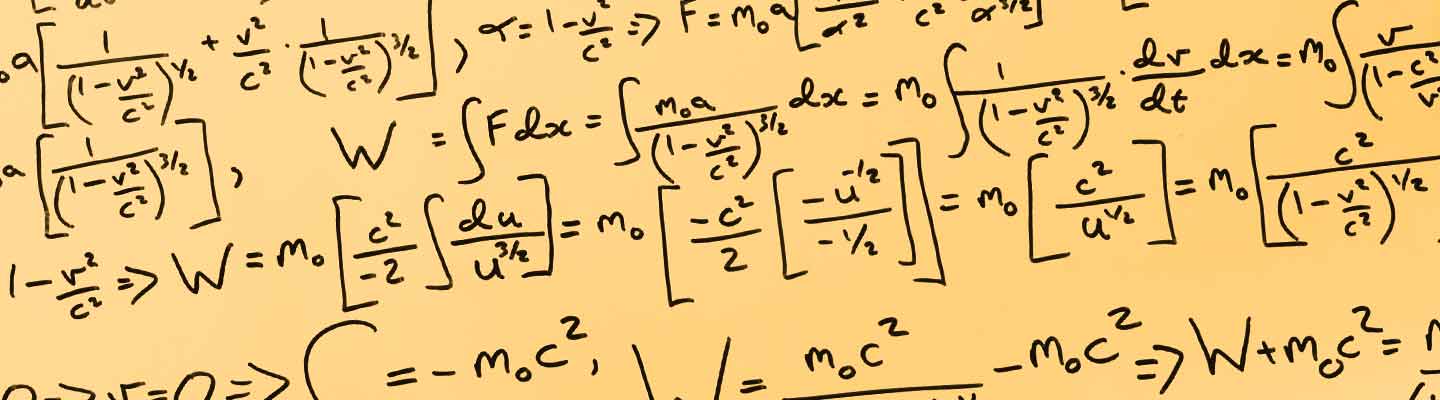 ₀a[1/(1-v²/c²)^(1/2) + v²/c² · 1/(1-v²/c²)^(3/2)], α = 1-v²/c² => F = m₀a[
a[1/(1-v²/c²)^(3/2)], W = ∫F dx = ∫ m₀a/(1-v²/c²)^(3/2) dx = m₀∫ 1/(1-v²/c²)^(3/2) · dv/dt dx = m₀∫ v/(1-c²/v²
1-v²/c² => W = m₀[c²/-2 ∫ du/u^(3/2)] = m₀[-c²/2 [-u^(-1/2)/-1/2]] = m₀[c²/u^(1/2)] = m₀[c²/(1-v²/c²)^(1/2)
=> v=0 => C = -m₀c², W = m₀c²/ - m₀c² => W+m₀c² =